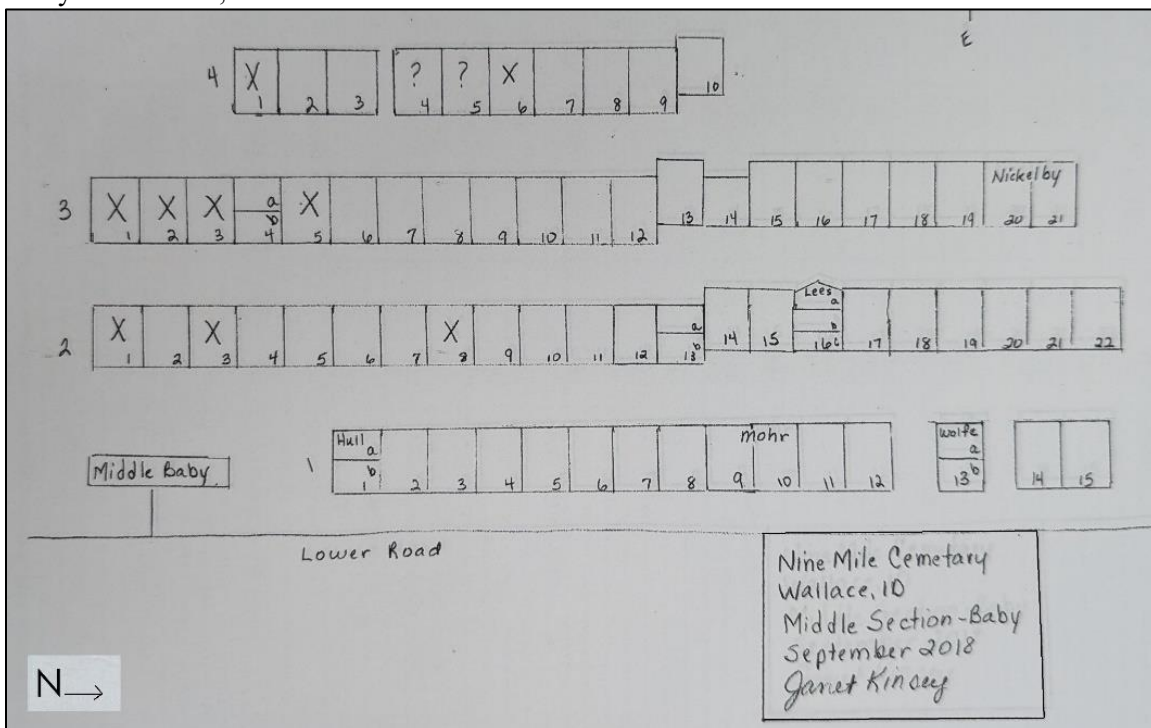 E
4 X 1 2 3 ? 4 ? 5 X 6 7 8 9 10
3 X 1 X 2 X 3 a b 4 X 5 6 7 8 9 10 11 12 13 14 15 16 17 18 19 Nickelby 20 21
2 X 1 2 X 3 4 5 6 7 X 8 9 10 11 12 a b 13 14 15 Lees a b 16c 17 18 19 20 21 22
Middle Baby
1 Hull a b 1 2 3 4 5 6 7 8 mohr 9 10 11 12 Wolfe a 13 b 14 15
Lower Road
Nine Mile Cemetary
Wallace, ID
Middle Section-Baby
September 2018
Janet Kinsey
N→